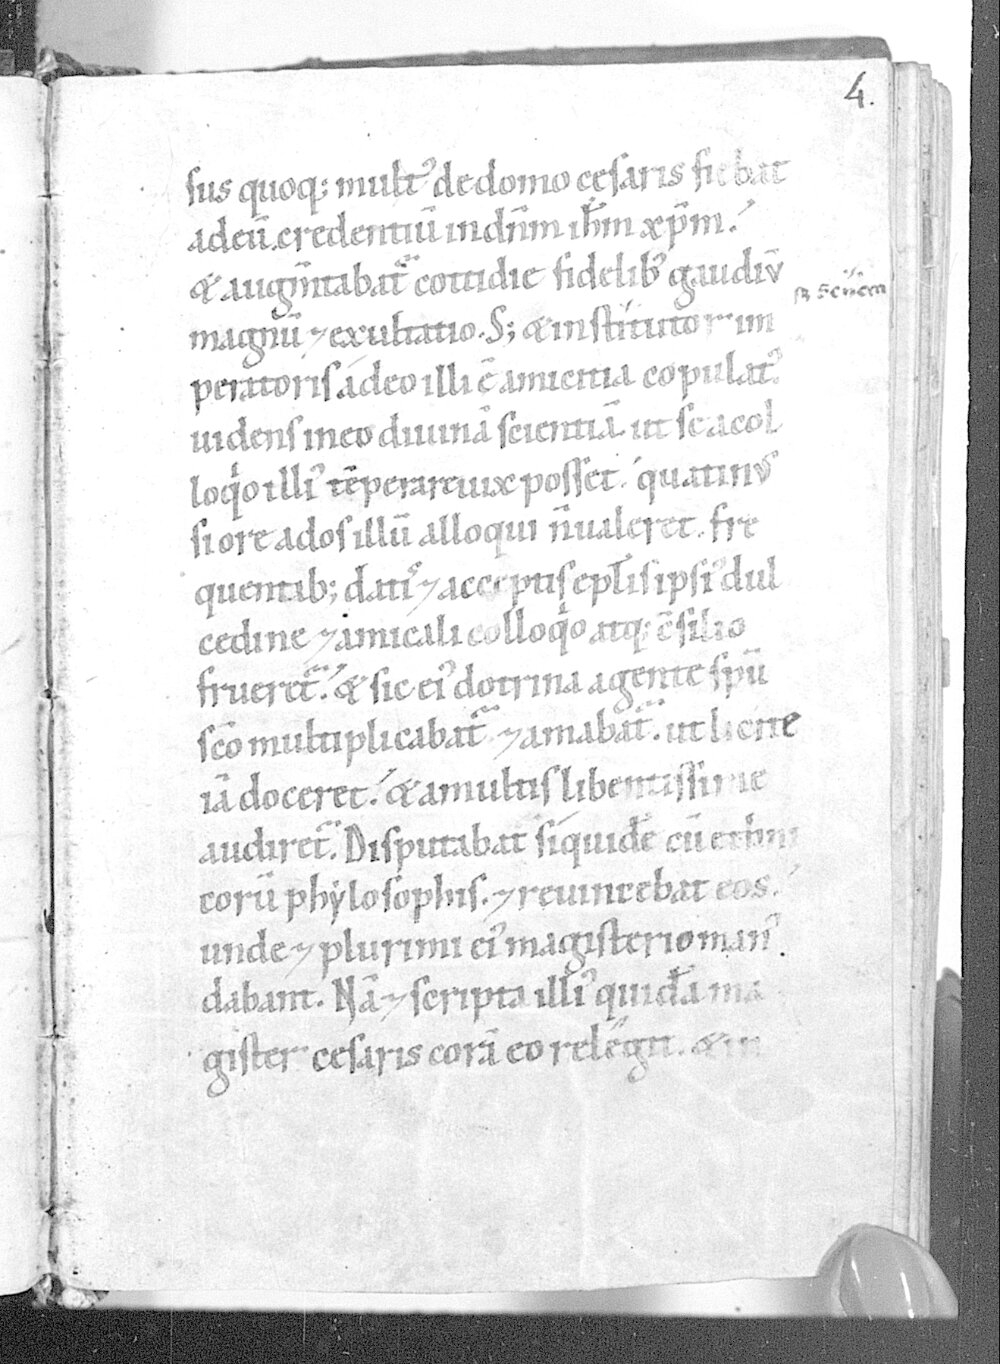 4.
sus quoq; mult᾽ de domo cesaris fiebat
ad eū. credentiū in dn̄m ih̄m xp̄m.
& augm̄tabat᾽ cottidie fidelib᾽ gaudiū
magnū ⁊ exultatio. S; & institutor im
peratoris adeo illi ē amicitia copulat᾽.
uidens in eo diuinā scientiā. ut se a col
loq̊o illi᾽ tēperare uix posset. quatin᾽
si ore ad os illū alloqui n̄ ualeret. fre
quentab; dati᾽ ⁊ acceptis epl̄is ipsi᾽ dul
cedine ⁊ amicali colloq̊o atq; c̄silio
frueret᾽. & sic ei᾽ dotrina agente sp̄u
sc̄o multiplicabat᾽ ⁊ amabat᾽. ut licite
iā doceret. & a multis libentissime
audiret᾽. Disputabat siquidē cū ethni
corū phẏlosophis. ⁊ reuincebat eos.
unde ⁊ plurimi ei᾽ magisterio man᾽
dabant. Nā ⁊ scripta illi᾽ quidā ma
gister cesaris corā eo relegit. & in